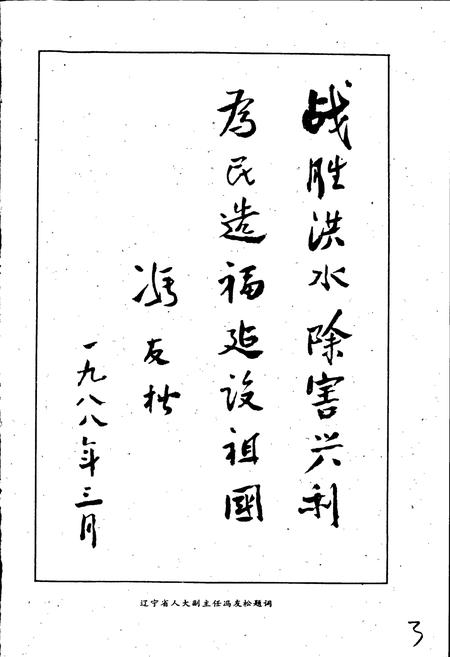 战胜洪水除害兴利
為民造福建设祖國
馮友松
一九八八年三月
辽宁省人大副主任冯友松题词
3